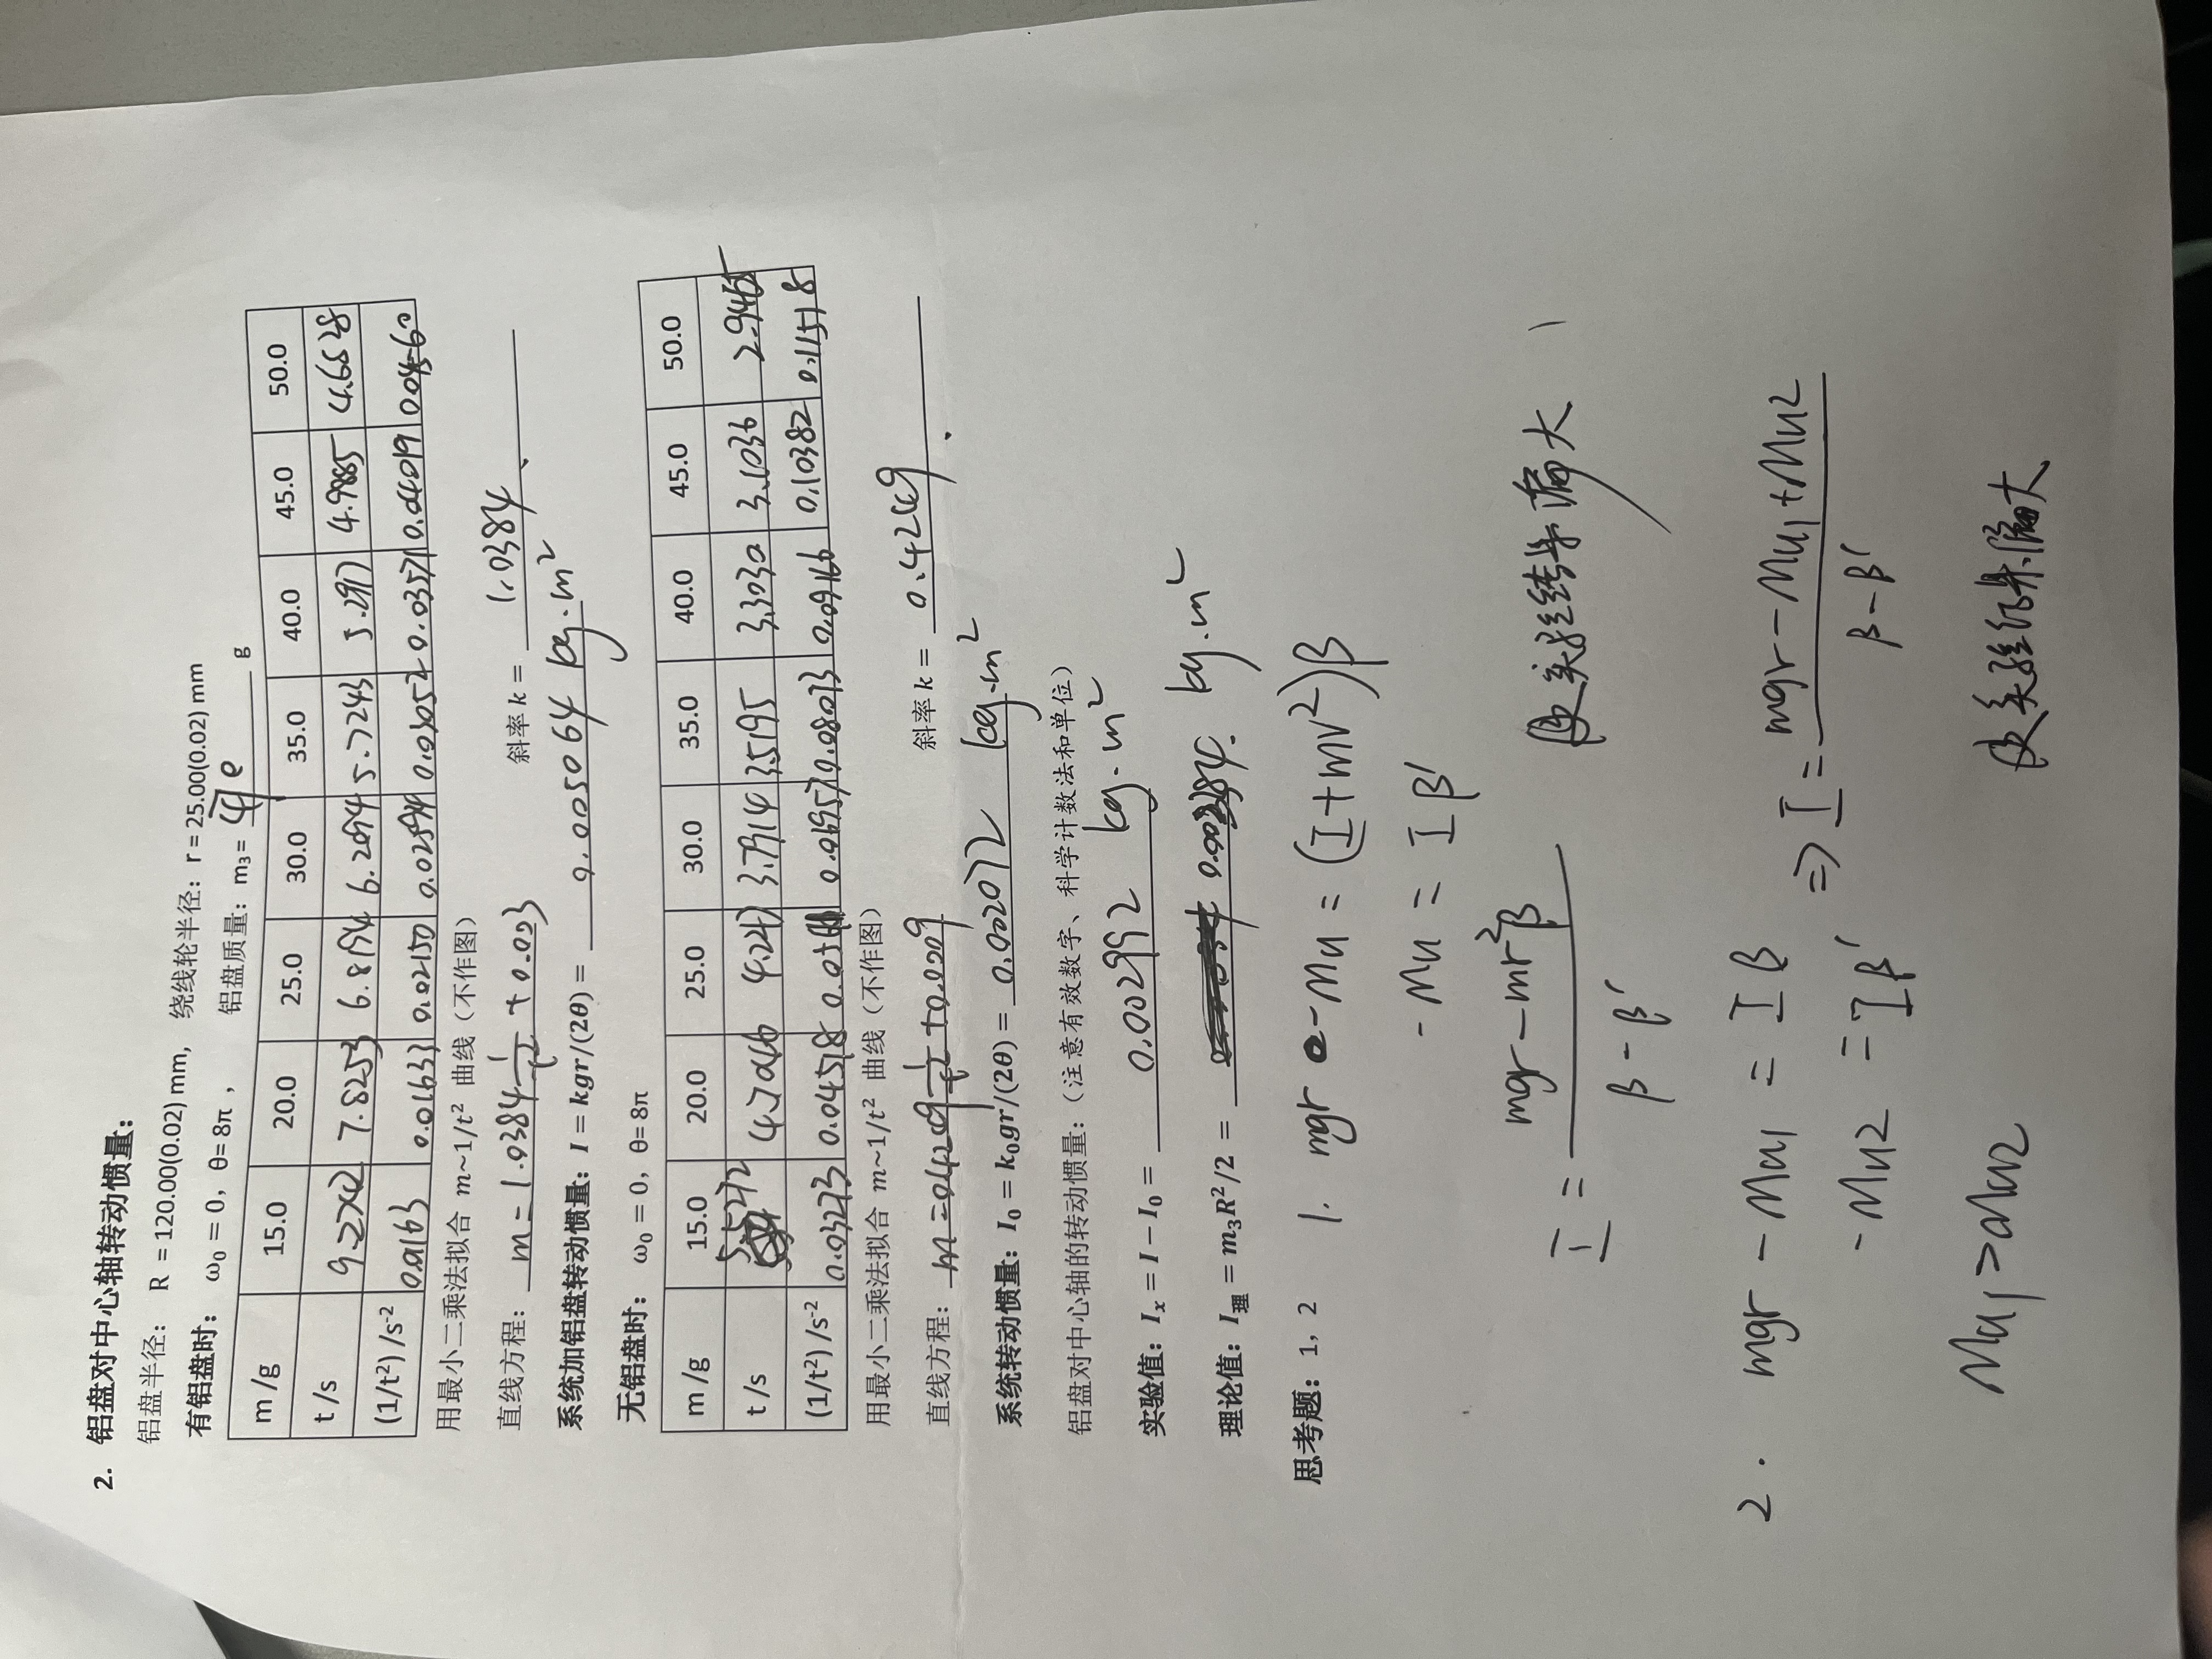 2. 铝盘对中心轴转动惯量：
铝盘半径： R = 120.00(0.02) mm, 绕线轮半径：r = 25.00(0.02) mm
有铝盘时： ω₀ = 0，θ= 8π ， 铝盘质量：m₃ = g
m /g 15.0 20.0 25.0 30.0 35.0 40.0 45.0 50.0
t /s 7.8253 6.8194 6.2094 5.7243 5.297 4.9885 4.6628
(1/t²) /s⁻² 0.0163 0.01633 0.02150 0.02594 0.03052 0.03571 0.04019 0.04560
用最小二乘法拟合 m~1/t² 曲线（不作图）
直线方程： m = 1.0384 1/t² + 0.003 斜率 k = 1.0384
系统加铝盘转动惯量：I = kgr/(2θ) = 0.005064 kg·m²
无铝盘时： ω₀ = 0，θ= 8π
m /g 15.0 20.0 25.0 30.0 35.0 40.0 45.0 50.0
t /s 5.5272 4.7046 4.247 3.7914 3.5195 3.3030 3.1036 2.9465
(1/t²) /s⁻² 0.03273 0.04518 0.06957 0.08073 0.09166 0.10382 0.11518
用最小二乘法拟合 m~1/t² 曲线（不作图）
直线方程： m = 0.4249 1/t² + 0.009 斜率 k = 0.4249
系统转动惯量：I₀ = k₀gr/(2θ) = 0.002072 kg·m²
铝盘对中心轴的转动惯量：（注意有效数字、科学计数法和单位）
实验值：Iₓ = I − I₀ = 0.002992 kg·m²
理论值：I理 = m₃R²/2 = kg·m²
思考题：1, 2 1. mgr - Mu = (I+mr²)β
-Mu = Iβ'
I = (mgr - mr²β)/(β-β') 使实验结果偏大
2. mgr - Mu1 = Iβ
-Mu2 = Iβ' ⇒ I = (mgr - Mu1 + Mu2)/(β-β')
Mu1 > Mu2 使实验结果偏大